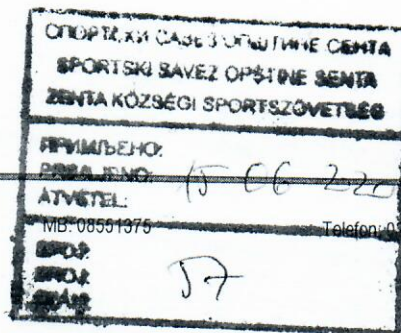 СПОРТСКИ САВЕЗ ОПШТИНЕ СЕНТА
SPORTSKI SAVEZ OPŠTINE SENTA
ZENTA KÖZSÉGI SPORTSZÖVETSÉG
ПРИМЉЕНО:
PRIMLJENO: 15 06
ÁTVÉTEL:
MB: 08551375 Telefon: 0
БРОЈ:
BROJ: 57
SZÁM: